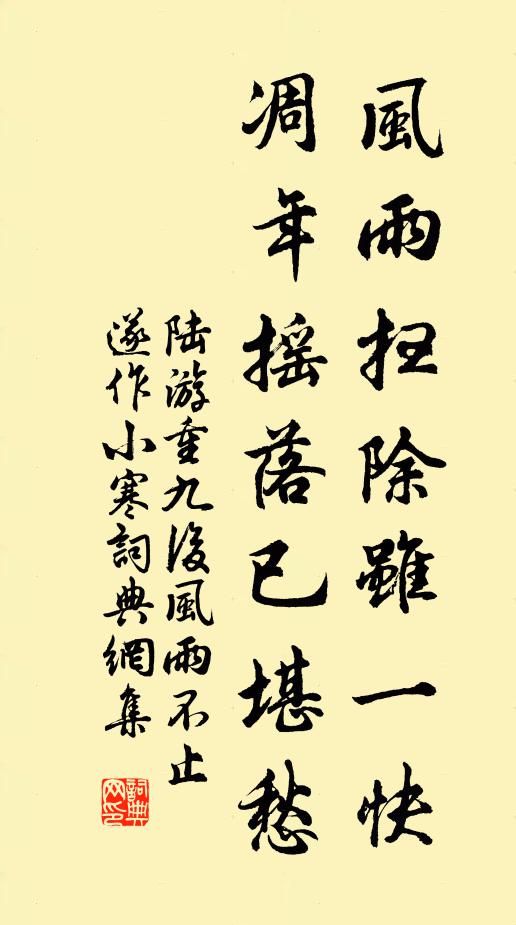 風雨掃除雖一快
凋年摇落已堪愁
陆游重九後風雨不止
遂作小寒詞典網集
詞典网印